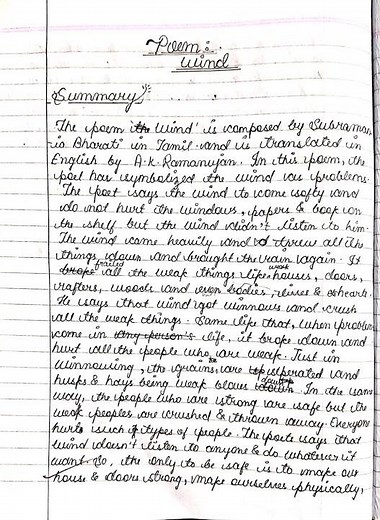 Poem:
Wind
Summary
The poem 'the Wind' is composed by Subraman-
ia Bharati in Tamil and is translated in
English by A.K. Ramanujan. In this poem, the
poet has symbolized the wind as problems.
The Poet says the wind to come softly and
do not hurt the windows, papers & book on
the shelf but the wind didn't listen to him.
The wind came heavily and threw all the
things down and brought the rain again. It
all the weak things like weak houses, doors,
rafters, woods and even bodies, lives & hearts.
He says that wind god winnows and crush
all the weak things. Same like that, when problem
come in any person's life, it broke down and
hurt all the people who are weak. Just in
winnowing, the grains are seperated and
husps & hays being weak blows down. In the same
way, the people who are strong are safe but the
weak peoples are crushed & thrown away. Everyone
hurts such types of people. The poets says that
wind doesn't listen to anyone & do whatever it
want. So, the only to be safe is to make our
house & doors strong, make ourselves physically,